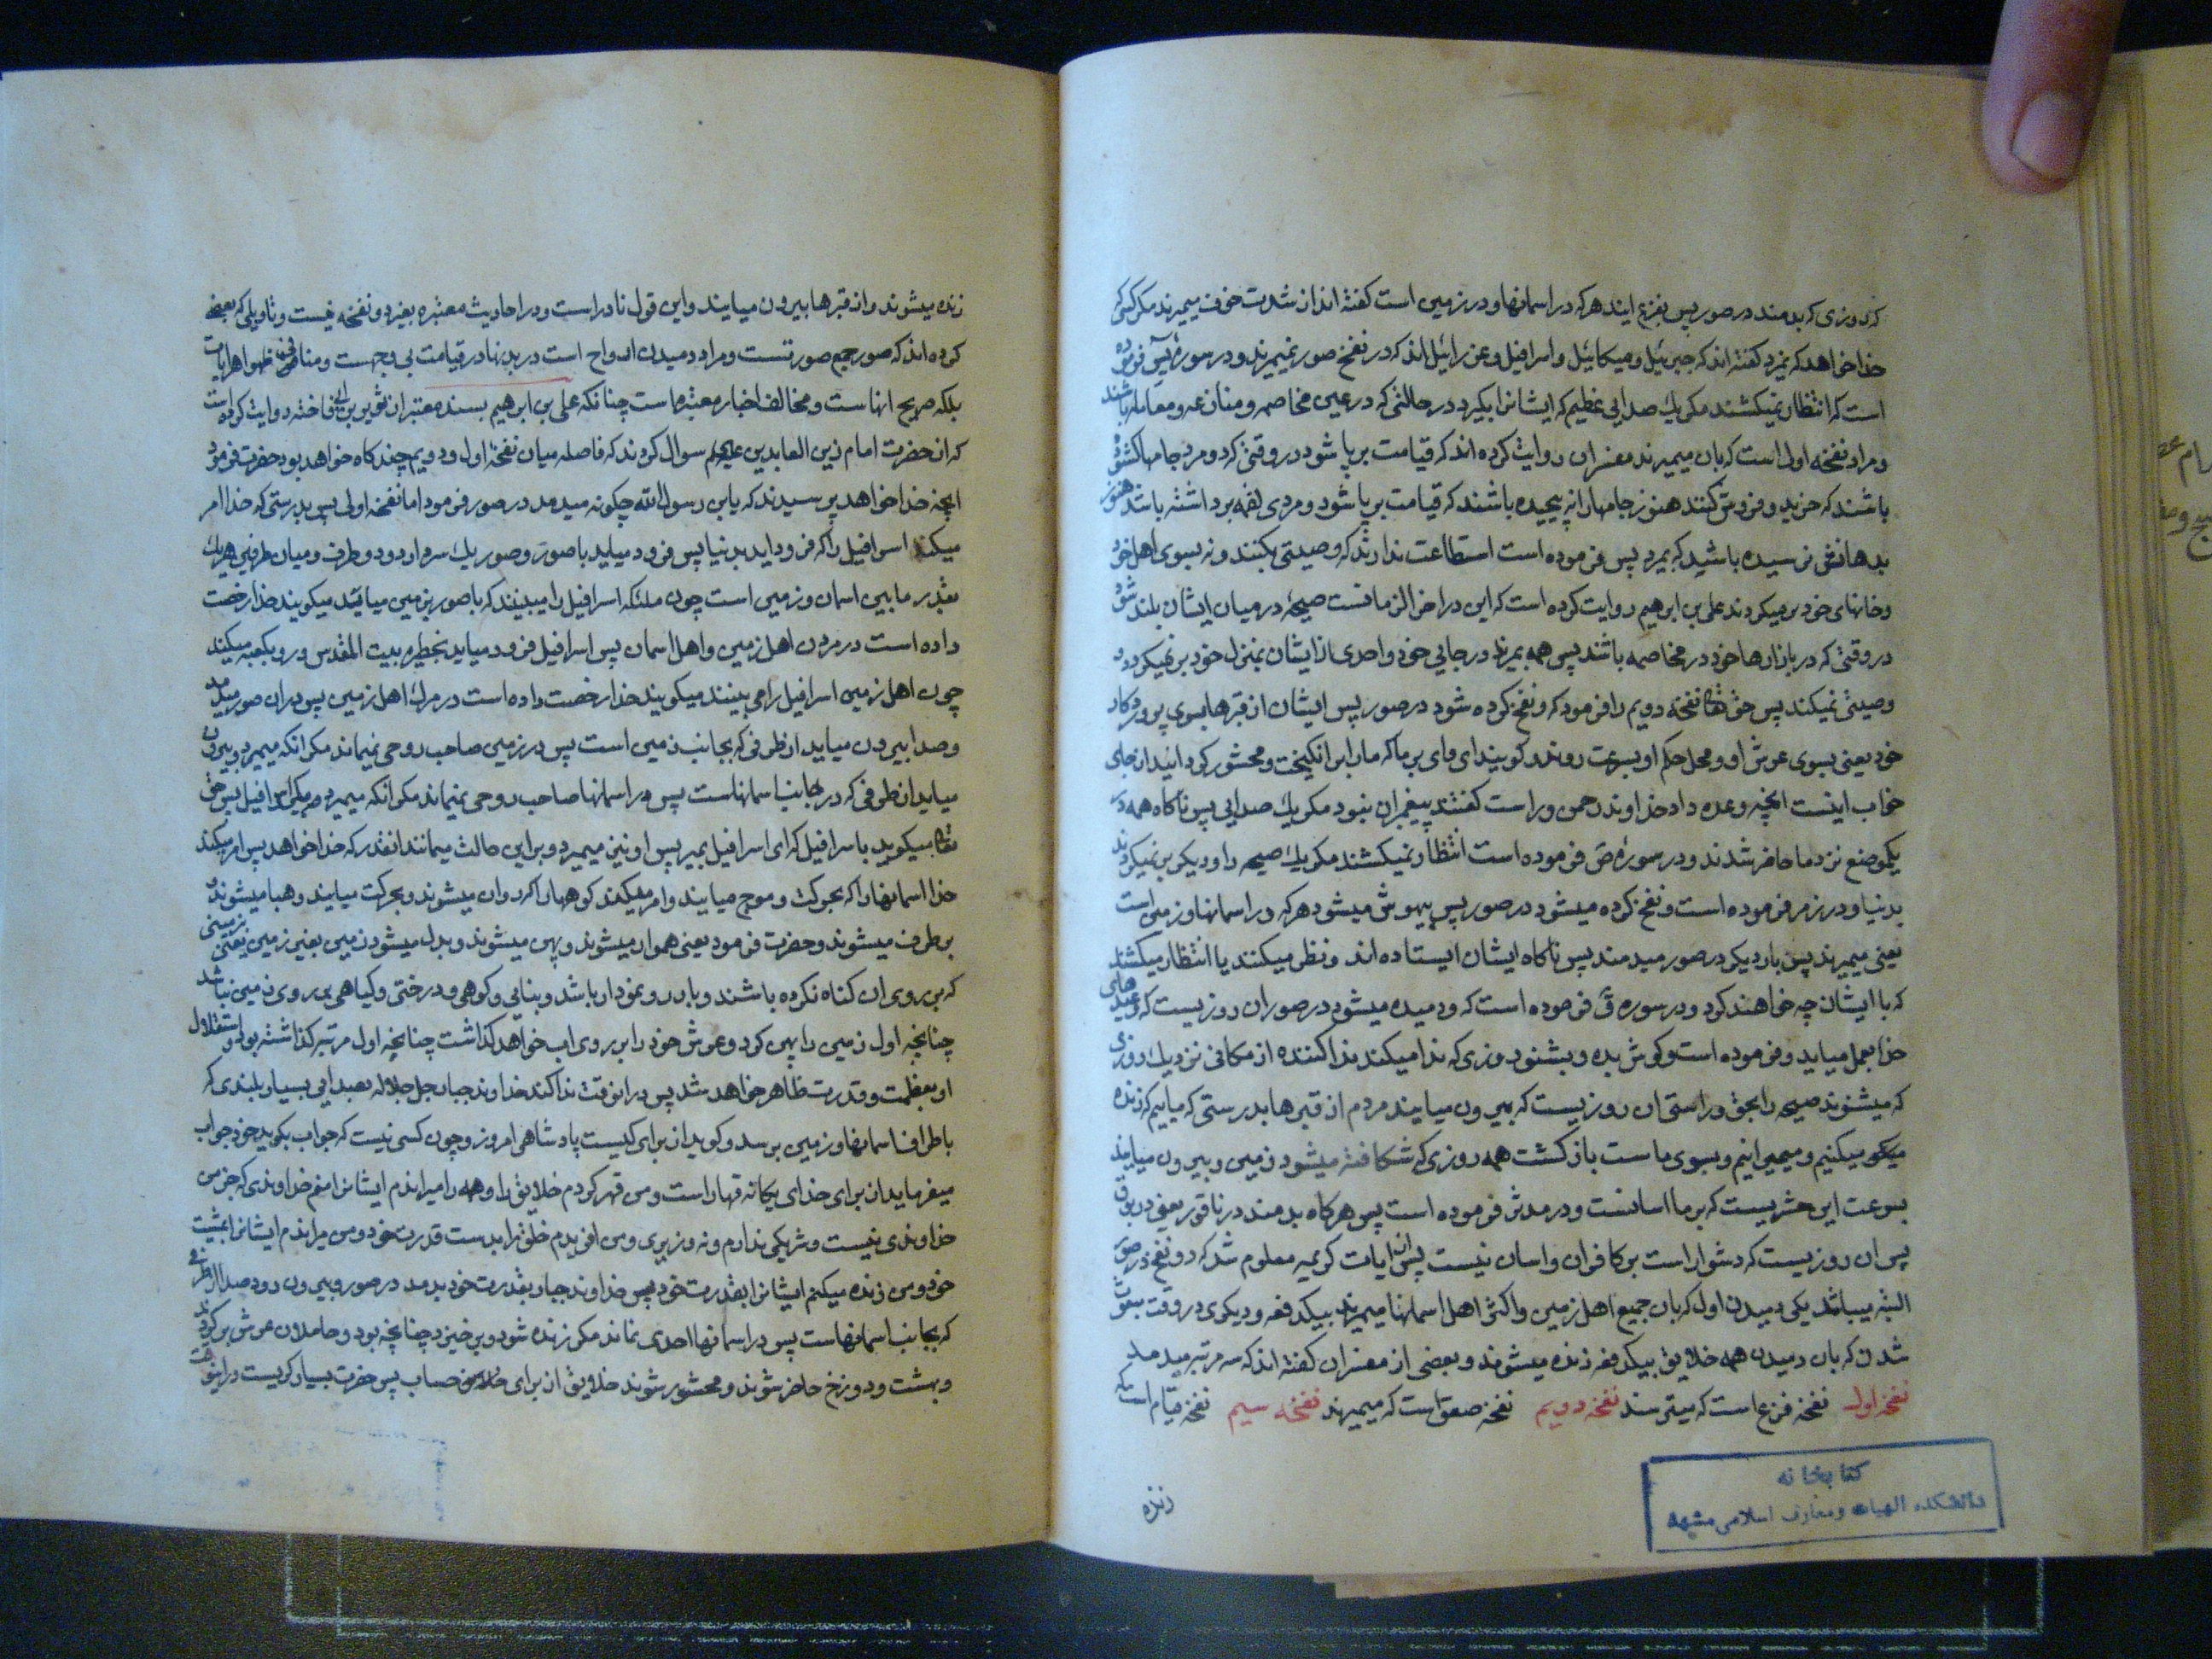 که روزی که بدمند در صور پس بفزع ایند هر که در اسمانها و در زمین است کفته اند از شدت خوف میمیرند مکر کسی که
خدا خواهد که نمیرد کفته اند که جبرئیل و میکائیل و اسرافیل و عزرائیل اند که در نفخ صور نمیمیرند و در سوره یس فرموده
است که انتظار نمیکشند مکر یك صدایی عظیم که ایشانرا بکیرد در حالتی که در عین مخاصمه و منازعه و معامله باشند
و مراد نفخه اول است که بان میمیرند مفسران روایت کرده اند که قیامت برپا شود در وقتی که دو مرد جامها کشوده
باشند که خرید و فروش کنند هنوز جامها را نپیچیده باشند که قیامت برپا شود و مردی لقمه برداشته باشد هنوز
بدهانش نرسیده باشد که بمیرد پس فرموده است استطاعت ندارند که وصیتی بکنند و نه بسوی اهل خود
و خانهای خود برمیکردند علی بن ابرهیم روایت کرده است که این در اخر الزمانست صیحهٔ در میان ایشان بلند شود
در وقتی که در بازارها خود در مخاصمه باشند پس همه بمیرند در جایی خود و احدی از ایشان بمنزل خود برنمیکردد و
وصیتی نمیکند پس حق تعالی نفخه دویم را فرمود که و نفخ کرده شود در صور پس ایشان از قبرها بسوی پروردکار
خود یعنی بسوی عرش او و محل حکم او بسرعت روند و کویند ای وای بر ما که مارا بر انکیخت و محشور کردانید از جای
خواب اینست انچه وعده داد خداوند رحمن و راست کفتند پیغمبران نبود مکر یك صدایی پس ناکاه همه در
یکموضع نزد ما حاضر شدند و در سوره ص فرموده است انتظار نمیکشند مکر یك صیحه را و دیکر برنمیکردند
بدنیا و در زمر فرموده است و نفخ کرده میشود در صور پس بیهوش میشود هر که در اسمانها و زمین است
یعنی میمیرند پس بار دیکر در صور میدمند پس ناکاه ایشان ایستاده اند و نظر میکنند یا انتظار میکشند
که با ایشان چه خواهند کرد و در سوره ق فرموده است که و دمیده میشود در صور ان روزیست که وعید های
خدا بعمل میاید و فرموده است و کوش بده و بشنو روزی که ندا میکند ندا کننده از مکانی نزدیك روزی
که میشنوند صیحه را بحق و راستی ان روزیست که بیرون میایند مردم از قبرها بدرستی که ماییم که زنده
میکنیم و میمیرانیم و بسوی ماست بازکشت همه روزی که شکافته میشود زمین و بیرون میایند
بسرعت این حشریست که بر ما اسانست و در مدثر فرموده است پس هرکاه بدمند در ناقور یعنی در بوق
پس ان روزیست که دشوار است بر کافران و اسان نیست پس از ایات کریمه معلوم شد که دو نفخ در صور
البته میباشد یکی دمیدن اول که بان جمیع اهل زمین و اکثر اهل اسمانها میمیرند بیکدفعه و دیکری در وقت مبعوث
شدن که بان دمیدن همه خلایق بیکدفعه زنده میشوند و بعضی از مفسران کفته اند که سه مرتبه میدمد
نفخه اول نفخه فزع است که میترسند نفخه دویم نفخه صعق است که میمیرند نفخه سیم نفخه قیام است که
زنده
کتابخانه
دانشکده الهیات و معارف اسلامی مشهد
زنده میشوند و از قبرها بیرون میایند و این قول نادر است و در احادیث معتبره بغیر دو نفخه نیست و تاویلی که بعضی
کرده اند که صور جمع صورتست و مراد دمیدن ارواح است در بدنها در قیامت بی وجهست و منافی ظواهر ایات
بلکه صریح انهاست و مخالف اخبار معتبره است چنانکه علی بن ابرهیم بسند معتبر از ثویر بن ابی فاخته روایت کرده است
که از حضرت امام زین العابدین علیه السلم سوال کردند که فاصله میان نفخهٔ اول و دویم چند کاه خواهد بود حضرت فرمود
انچه خدا خواهد پرسیدند که یابن رسول الله چکونه میدمد در صور فرمود اما نفخه اولی پس بدرستی که خدا امر
میکند اسرافیل را که فرود اید بدنیا پس فرود میاید با صور و صور یك سر دارد و دو طرف و میان طرفین هر یك
بقدر مابین اسمان و زمین است چون ملئکه اسرافیل را میبینند که با صور بزمین میاید میکویند خدا رخصت
داده است در مردن اهل زمین و اهل اسمان پس اسرافیل فرود میاید بخطیره بیت المقدس و رو بکعبه میکند
چون اهل زمین اسرافیل را می بینند میکویند خدا رخصت داده است در مرك اهل زمین پس دران صور میدمد
و صدا بیرون میاید از طرفی که بجانب زمین است پس در زمین صاحب روحی نمیماند مکر انکه میمیرد و بیرون
میاید از طرفی که در بجانب اسمانهاست پس در اسمانها صاحب روحی نمیماند مکر انکه میمیرد مکر اسرافیل پس حق
تعالی میکوید با سرافیل که ای اسرافیل بمیر پس او نیز میمیرد و براین حالت میمانند انقدر که خدا خواهد پس امر میکند
خدا اسمانها را که بحرکت و موج میایند و امر میکند کوهها را که روان میشوند و بحرکت میایند و هبا میشوند و
برطرف میشوند و حضرت فرمود یعنی هموار میشوند و پهن میشوند و بدل میشود زمین بغیر زمین یعنی زمینی
که بر روی ان کناه نکرده باشند و بارز و نمودار باشد و بنایی و کوهی و درختی و کیاهی بر روی زمین نباشد
چنانچه اول زمین را پهن کرد و عرش خود را بر روی اب خواهد کذاشت چنانچه اول مرتبه کذاشته بود و استقلال
او بعظمت و قدرت ظاهر خواهد شد پس درانوقت ندا کند خداوند جبار جل جلاله بصدایی بسیار بلندی که
باطراف اسمانها و زمین برسد و کوید از برای کیست پادشاهی امروز و چون کسی نیست که جواب بکوید خود جواب
میفرماید از برای خدای یکانه قهار است و من قهر کردم خلایق را و همه را میراندم ایشانرا منم خداوندی که جز من
خداوندی نیست و شریکی ندارم و نه وزیری و من افریدم خلق را بدست قدرت خود و من میراندم ایشانرا بمشیت
خود و من زنده میکنم ایشانرا بقدرت خود پس خداوند جبار بقدرت خود بدمد در صور و بیرون رود صدا از طرفی
که بجانب اسمانهاست پس در اسمانها احدی نماند مکر زنده شود و برخیزد چنانچه بود و حاملان عرش برکردند
و بهشت و دوزخ حاضر شوند و محشور شوند خلایق از برای حساب پس حضرت بسیار کریست درانوقت